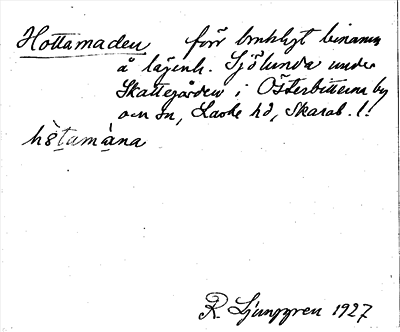 Hottamaden förr brukligt binamn
å lägenh. Sjölunda under
Skattegården i Österbitterna by
och sn, Laske hd, Skarab. l.
R. Ljunggren 1927